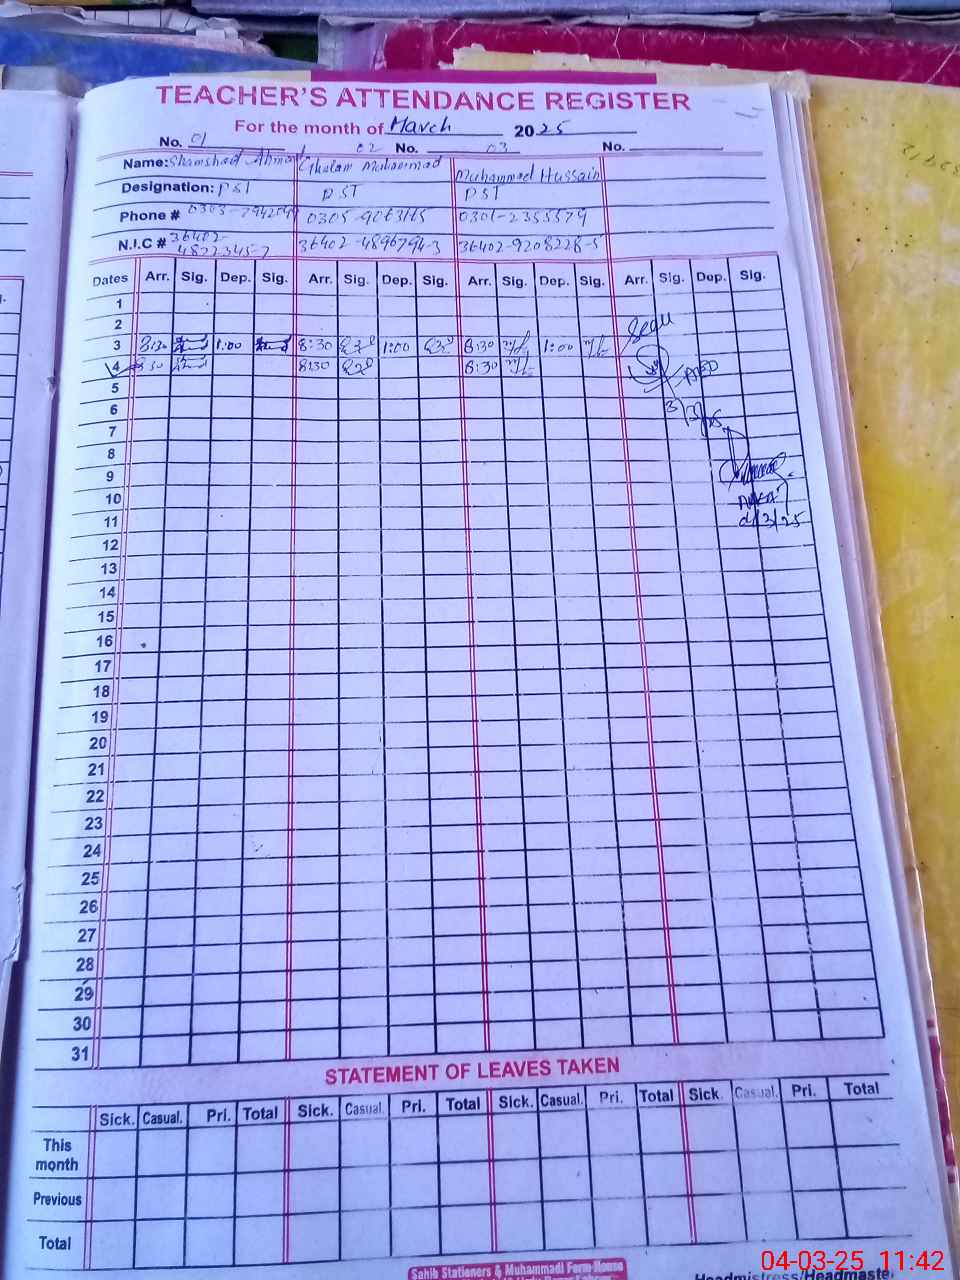 TEACHER'S ATTENDANCE REGISTER
For the month of March 2025
No. 01 02 No. 03 No.
Name: Shamshad Ahmad Ghulam Muhammad Muhammad Hussain
Designation: PST PST PST
Phone # 0305-9063165 0301-2355579
N.I.C # 36402-4822345-7 36402-4896794-3 36402-9208228-5
Dates Arr. Sig. Dep. Sig. Arr. Sig. Dep. Sig. Arr. Sig. Dep. Sig. Arr. Sig. Dep. Sig.
1
2
3 8:30 1:00 8:30 1:00 8:30 1:00 Seen
4 8:30 8:30 8:30
AEO
5
6 3/3/25
7
8
9
10
11 4/3/25
12
13
14
15
16
17
18
19
20
21
22
23
24
25
26
27
28
29
30
31
STATEMENT OF LEAVES TAKEN
Sick. Casual. Pri. Total Sick. Casual. Pri. Total Sick. Casual. Pri. Total Sick. Casual. Pri. Total
This month
Previous
Total
Sahib Stationers & Muhammadi Form House
Headmistress/Headmaster
04-03-25 11:42